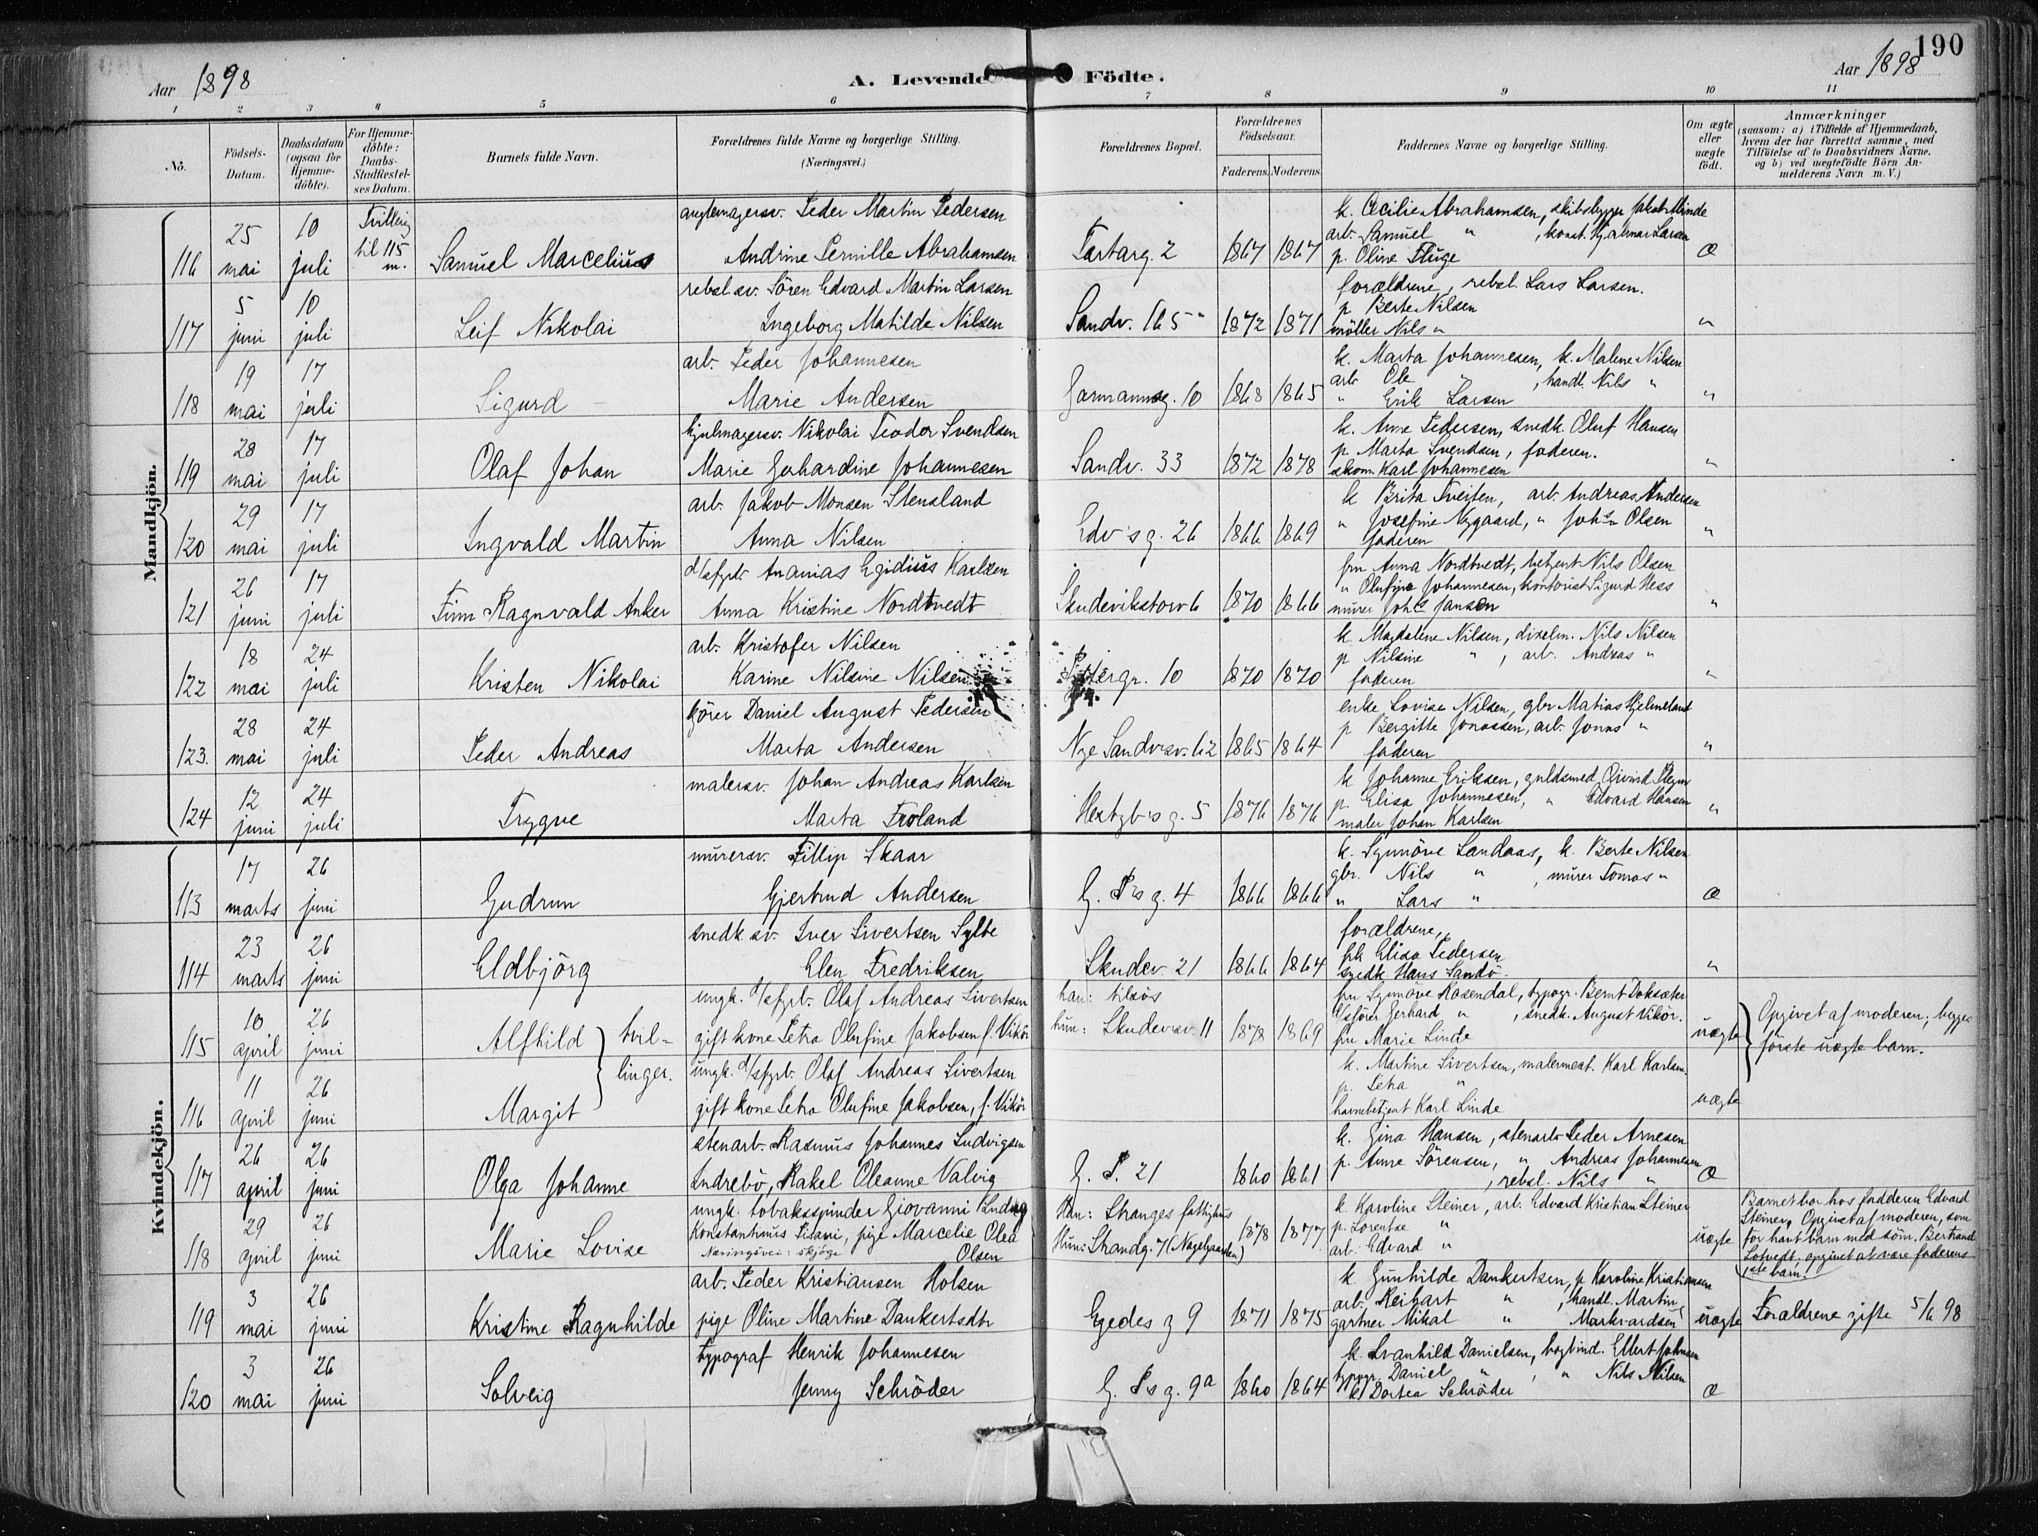 190
Aar 1898
A. Levende Födte.
Aar 1898
1 2 3 4 5 6 7 8 9 10 11
No.
Födsels-Datum.
Daabsdatum (ogsaa for Hjemme-döbte).
For Hjemme-döbte: Daabs-Stadfæstel-ses Datum.
Barnets fulde Navn.
Forældrenes fulde Navne og borgerlige Stilling. (Næringsvei.)
Forældrenes Bopæl.
Forældrenes Födselsaar.
Faderens. Moderens.
Faddernes Navne og borgerlige Stilling.
Om ægte eller uægte födt.
Anmærkninger
(saasom: a) i Tilfælde af Hjemmedaab, hvem der har forrettet samme, med Tilföielse af to Daabsvidners Navne. og b) ved uægtefödte Börn An-melderens Navn m. V.)
Mandkjön.
116 25 mai 10 juli Tvilling til 115 m. Samuel Marcelius
Peder Martin Pedersen
Andrine Pernille Abrahamsen
Tartarg. 2 1867 1867
k. Cecilie Abrahamsen, skibsbygger Jakob Minde
arb. Samuel " , konst. Hjalmar Larsen
p. Oline Fluge
æ
117 5 juni 10 juli Leif Nikolai
rebsl.sv. Sören Edvard Martin Larsen
Ingeborg Matilde Nilsen
Sandv. 165 1872 1871
forældrene, rebsl. Lars Larsen.
p Berte Nilsen
möller Nils "
"
118 19 mai 17 juli Sigurd
arb. Peder Johannesen
Marie Andersen
Garmannsg. 10 1868 1865
k. Marta Johannesen, k. Malene Nilsen
arb. Ole " , handl. Nils "
" Erik Larsen
"
119 28 mai 17 juli Olaf Johan
hjulmagersv. Nikolai Teodor Svendsen
Marie Gerhardine Johannesen
Sandv. 33 1872 1878
k. Anne Pedersen, snedk. Oluf Hansen
p. Marta Svendsen, faderen.
skom. Karl Johannesen
"
120 29 mai 17 juli Ingvald Martin
arb. Jakob Monsen Stensland
Anna Nilsen
Edv's g. 26 1866 1869
k Brita Tveiten, arb. Andreas Andersen
" Josefine Nygaard, " Johs Olsen
faderen
"
121 26 juni 17 juli Finn Ragnvald Anker
d/sfyrb. Ananias Egidius Karlsen
Anna Kristine Nordtvedt
Skudevikstorv 6 1870 1866
fru Anna Nordtvedt, betjent Nils Olsen
" Olufine Johannesen, kontorist Sigurd Hess
murer Johs Jansen
"
122 18 mai 24 juli Kristen Nikolai
arb. Kristofer Nilsen
Karine Nilsine Nilsen
10 1870 1870
k Magdalene Nilsen, dixelm. Nils Nilsen
p Nilsine " , arb. Andreas "
faderen
"
123. 28 mai 24 juli Peder Andreas
kjörer Daniel August Pedersen
Marta Andersen
Nye Sandvsv. 62 1865 1864
enke Lovise Nilsen, gbr Matias Hjelmeland
p Bergitte Jonassen, arb. Jonas "
faderen
"
124 12 juni 24 juli Trygve
malersv. Johan Andreas Karlsen
Marta Froland
Hertzb's g. 5 1876 1876
k Johanne Eriksen, guldsmed Öivind
p. Elisa Johannesen, " Edvard Hansen
maler Johan Karlsen
"
Kvindekjön.
113 17 marts 26 juni Gudrun
murersv. Fillip Skaar
Gjertrud Andersen
G. P's g. 4 1866 1866
k. Synnöve Sandaas, k. Berte Nilsen
gbr. Nils " , murer Tomas "
" Lars "
æ
114 23 marts 26 juni Eldbjörg
snedk.sv. Iver Sivertsen Sylte
Elen Fredriksen
Skudev. 21 1866 1864
forældrene,
frk Elisa Pedersen
snedk Hans Sandö
"
115 10 april 26 juni Alfhild tvil-linger.
ungk. d/sfyrb. Olaf Andreas Sivertsen
gift kone Petra Olufine Jakobsen f. Vikör
han: tilsös
hun: Skudevsv. 11 1878 1869
fru Synnöve Rosendal, typogr. Bernt Doksæter
Gerhard " , snedk. August Vikör.
fru Marie Linde
uægte
Opgivet af moderen; begges förste uægte barn.
116 11 april 26 juni Margit
ungk. d/sfyrb. Olaf Andreas Sivertsen
gift kone Petra Olufine Jakobsen, f. Vikör
k. Martine Sivertsen, malermest. Karl Karlsen.
p. Petra "
havnebetjent Karl Linde
uægte
117 26 april 26 juni Olga Johanne
stenarb. Rasmus Johannes Ludvigsen
Indrebö, Rakel Oleanne Valvig
G. P. 21 1860 1861
k. Gina Hansen, stenarb Peder Arnesen
p. Anne Sörensen, " Andreas Johannesen
, rebsl. Nils "
æ
118 29 april 26 juni Marie Lovise
ungk. tobaksspinder Giovanni Ludvig
Konstantinus Pisani, pige Marcelie Olea
Næringsvei: skjöge Olsen
Han: Stranges fattighus
Hun: Strandg. 7 (Nagelgaarden) 1878 1877
k. Karoline Steiner, arb. Edvard Kristian Steiner
p. Lorentse "
arb. Edvard "
uægte
Barnet bor hos fadderen Edvard
Steiner. Opgivet af moderen, som
för havt barn med söm. Bertrand
Lotvedt; opgivet at være faderens
1ste barn.
119 3 mai 26 juni Kristine Ragnhilde
arb. Peder Kristiansen Holsen
pige Oline Martine Dankertsdtr
Egedes g 9 1871 1875
k. Gunhilde Dankertsen, p Karoline Kristiansen
arb. Reihart " , handl. Martin
gartner Mikal " Markvardsen
uægte
Forældrene gifte 5/6 98
120 3 mai 26 juni Solveig
typograf Henrik Johannesen
Jenny Schröder
G. P's g. 9a 1860 1864
k. Svanhild Danielsen, bogbind. Ellert Johnsen
typogr. Daniel " , " Nils Nilsen
k. Dortea Schröder
æ